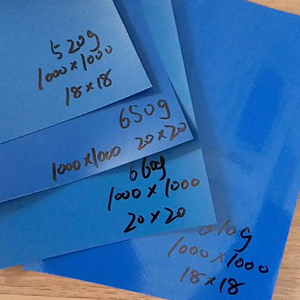 520g
1000×1000
18×18
650g
1000×1000 20×20
660g
1000×1000
20×20
1000×1000
18×18